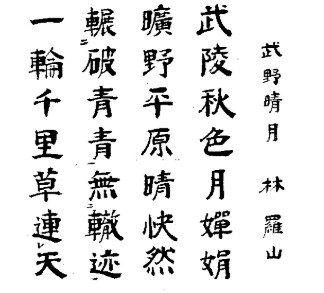 武野晴月 林羅山
武陵秋色月嬋娟
曠野平原晴快然
輾破青青無轍迹
一輪千里草連天